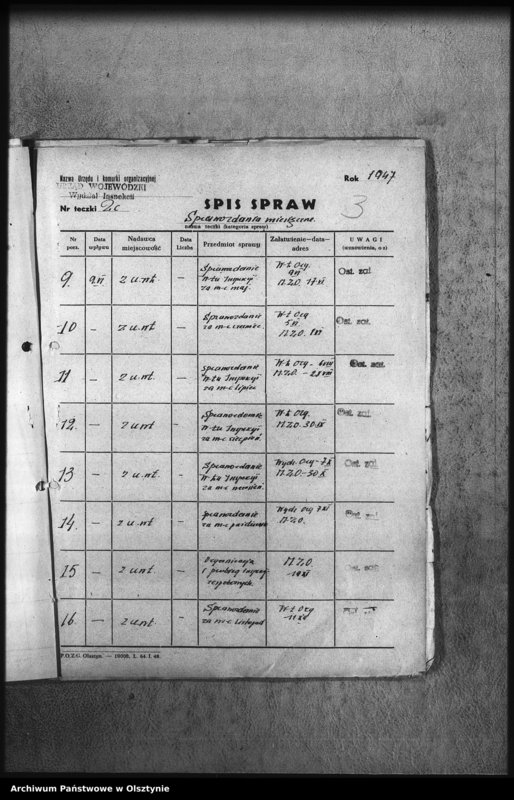 Nazwa Urzędu i komórki organizacyjnej
URZĄD WOJEWÓDZKI
Wydział Inspekcji
Rok 1947
Nr teczki 2c
SPIS SPRAW
3
Sprawozdania miesięczne.
nazwa teczki (kategoria sprawy)
Nr porz.
Data wpływu
Nadawca miejscowość
Data Liczba
Przedmiot sprawy
Załatwienie—data—adres
UWAGI
9. 9.VI z u.nt — Sprawozdanie W-łu Inspekcji za m-c maj. W-ł Org. M.Z.O. 17 VI Ost. zał.
10 — z u.nt — Sprawozdanie za m-c czerwiec. W-ł Org M.Z.O. Ost. zał.
11 — z u.nt. — Sprawozdanie W-łu Inspekcji za m-c lipiec W-ł Org M.Z.O. Ost. zał.
12. — z u.nt — Sprawozdanie W-łu Inspekcji za m-c sierpień W-ł Org. M.Z.O. 30.IX Ost. zał.
13 — z u.nt. — Sprawozdanie W-łu Inspekcji za m-c Wydz. Org — 7 X M.Z.O. — 30 X Ost. zał
14. — z u.nt — Sprawozdanie za m-c październik Wydz Org 7 XI M.Z.O. Ost. zał
15 — z u.nt. — Organizacja i M.Z.O. Ost. zał
16. — z u.nt. — Sprawozdanie za m-c listopad W-ł Org
P.O.Z.G. Olsztyn. — 10000. L. 64. I. 48.
Archiwum Państwowe w Olsztynie